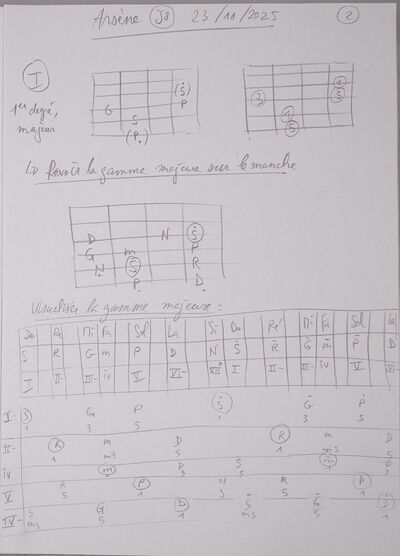 Arsène 23/11/2025 2
I
1er degré,
majeur
(Ṡ)
G P
S
(P.)
1
3 5
1
5
↳ Revoir la gamme majeure sur le manche
D N Ṡ
G m P
N. S R
P. D.
Visualiser la gamme majeure :
Do Ré Mi Fa Sol La Si Do Ré Mi Fa Sol La
S R G m P D N Ṡ Ṙ Ġ ṁ Ṗ D
I II- III- iv V VI- VII I II- III- iv V VI-
I- S G P Ṡ Ġ Ṗ
1 3 5 1 3 5
II- R m D R m D
1 m3 5 1 m3 5
iv m D S m D
1 3 5
V R P N R P
5 1 3 5 1
IV- S G D Ṡ Ġ Ḋ
m3 5 1 m3 5 1